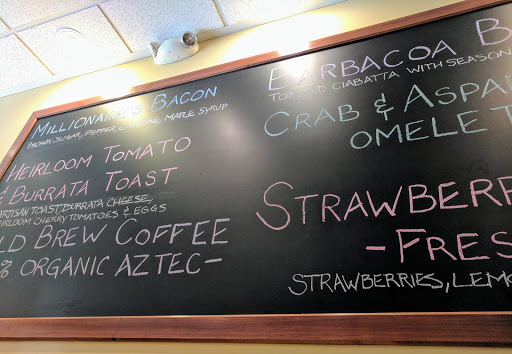 Millionaire's Bacon
Brown Sugar, Pepper, Cayenne, Maple Syrup
Heirloom Tomato
& Burrata Toast
Artisan Toast, Burrata Cheese,
eirloom Cherry Tomatoes & Eggs
ld Brew Coffee
% Organic Aztec-
Barbacoa B
Toasted Ciabatta with Season
Crab & Aspa
Omelet
Strawber
-Fres
Strawberries, Lemo